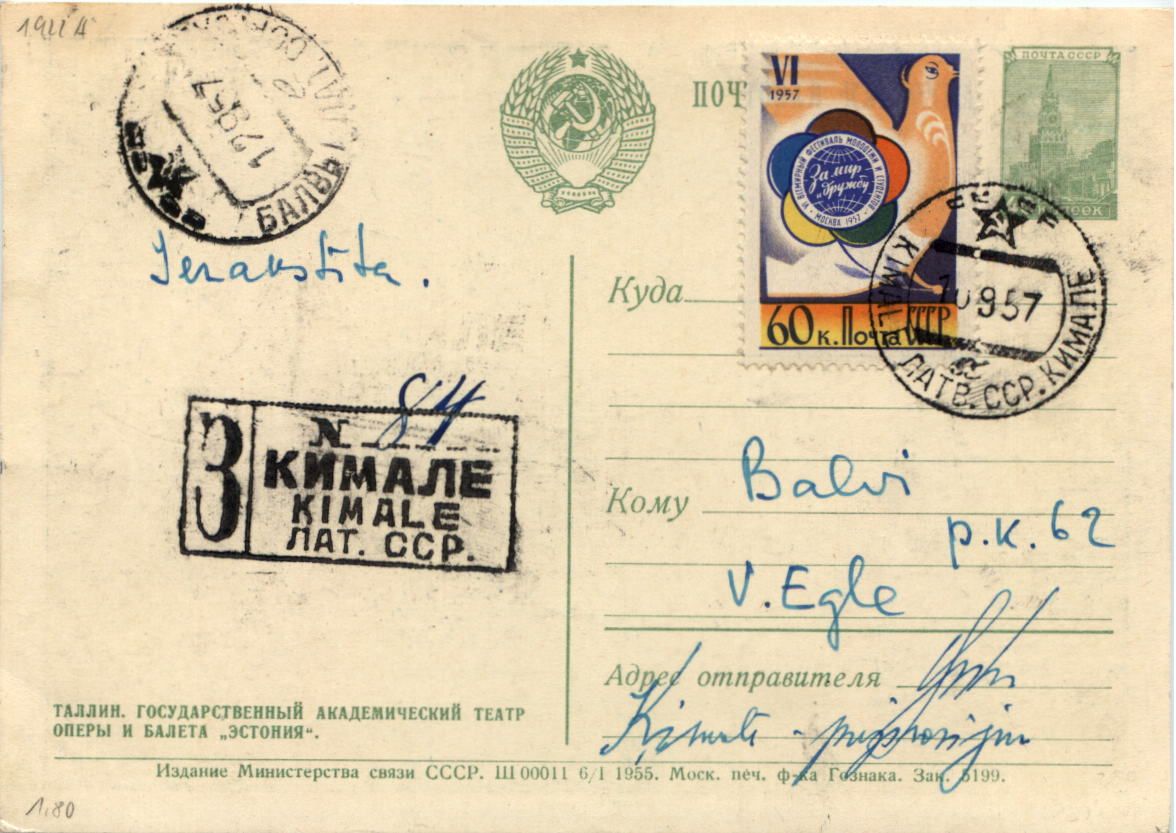 1911A
БАЛВЫ
12957
ПОЧ
VI
1957
VI ВСЕМИРНЫЙ ФЕСТИВАЛЬ МОЛОДЕЖИ И СТУДЕНТОВ
За мир
и дружбу
МОСКВА 1957
60 к. Почта СССР
ПОЧТА СССР
KIMALE
10957
ЛАТВ. ССР. КИМАЛЕ
Ierakstīta.
Куда
З
N 84
КИМАЛЕ
KIMALE
ЛАТ. ССР.
Кому
Balvi
p.k. 62
V. Egle
Адрес отправителя
ТАЛЛИН. ГОСУДАРСТВЕННЫЙ АКАДЕМИЧЕСКИЙ ТЕАТР
ОПЕРЫ И БАЛЕТА „ЭСТОНИЯ“.
Издание Министерства связи СССР. Ш 00011 6/I 1955. Моск. печ. ф-ка Гознака. Зак. 5199.
1.80